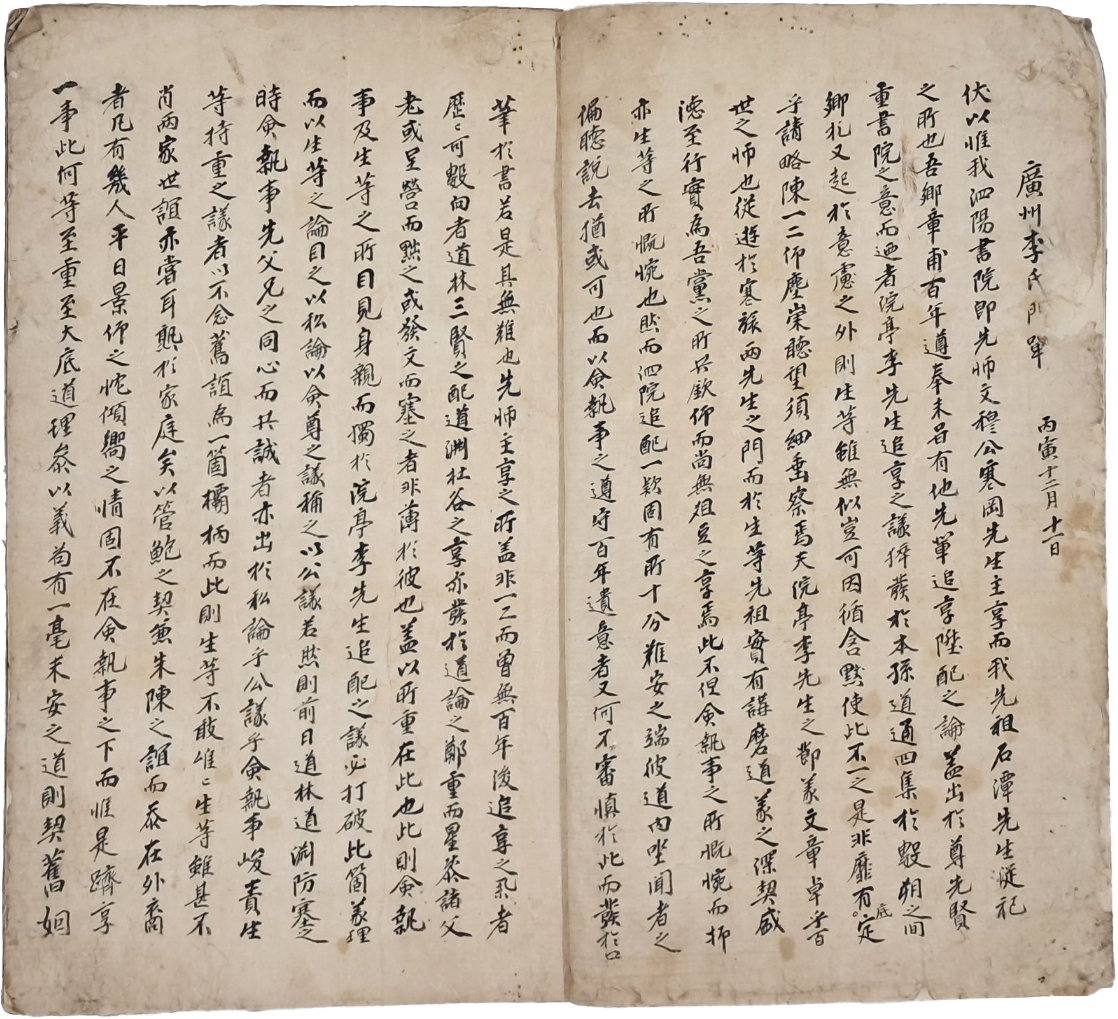 廣州李氏門單 丙寅十二月十一日
伏以惟我泗陽書院卽先师文穆公寒岡先生主享而我先祖石潭先生從祀
之所也吾鄕章甫百年遵奉未嘗有他先軰追享陞配之論盖出於尊先賢
重書院之意而廼者浣亭李先生追享之議猝發於本孫道通四集於毀朔之間
卿札又起於意慮之外則生等雖無似豈可因循含默使此不一之是非靡有底定
乎請略陳一二仰塵崇聽望須細垂察焉夫浣亭李先生之鄒義文章卓乎百
世之师也從遊於寒旅兩先生之門而於生等先祖實有講磨道義之深契盛
德至行實爲吾黨之所共欽仰而尚無俎豆之享焉此不但僉執事之所慨惋而抑
亦生等之所慨惋也然而泗院追配一欵固有所十分難安之端彼道內坐聞者之
偏聽說去猶或可也而以僉執事之遵守百年遺意者又何不審愼於此而發於口
筆於書若是其無難也先师主享之所盖非一二而曾無百年後追享之礼者
歷〻可數向者道林三賢之配道淵杜谷之享亦發於道論之鄭重而星泰諸父
老或呈營而黙之或發文而塞之者非薄於彼也盖以所重在此也此則僉執
事及生等之所目見身親而獨於浣亭李先生追配之議必打破此箇義理
而以生等之論目之以私論以僉尊之議稱之以公議若然則前日道林道渊防塞之
時僉執事先父兄之同心而共誠者亦出於私論乎公議乎僉執事峻責生
等持重之議者以不念舊誼爲一箇欛柄而此則生等不敢雖〻生等雖甚不
肖兩家世誼亦嘗耳熟於家庭矣以管鮑之契兼朱陳之誼而忝在外裔
者凡有幾人平日景仰之忱傾嚮之情固不在僉執事之下而惟是躋享
一事此何等至重至大底道理忝以義苟有一毫未安之道則契舊姻